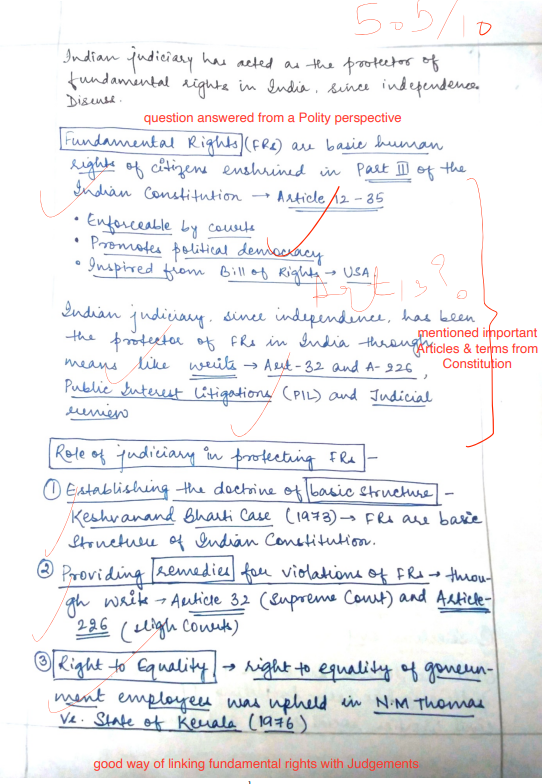 5.05/10
Indian judiciary has acted as the protector of
fundamental rights in India, since independence.
Discuss.
question answered from a Polity perspective
Fundamental Rights (FRs) are basic human
rights of citizens enshrined in Part III of the
Indian Constitution → Article 12-35
• Enforceable by courts
• Promotes political democracy
• Inspired from Bill of Rights → USA
Art 13?
Indian judiciary, since independence, has been
the protector of FRs in India through
means like writs → Art-32 and A-226,
Public Interest Litigations (PIL) and Judicial
review
mentioned important
Articles & terms from
Constitution
Role of judiciary in protecting FRs -
① Establishing the doctrine of basic structure -
Keshvanand Bharti Case (1973) → FRs are basic
structure of Indian Constitution.
② Providing remedies for violations of FRs → throu-
gh writs → Article 32 (Supreme Court) and Article-
226 (High Courts)
③ Right to Equality → right to equality of govern-
ment employees was upheld in N.M Thomas
Vs. State of Kerala (1976)
good way of linking fundamental rights with Judgements